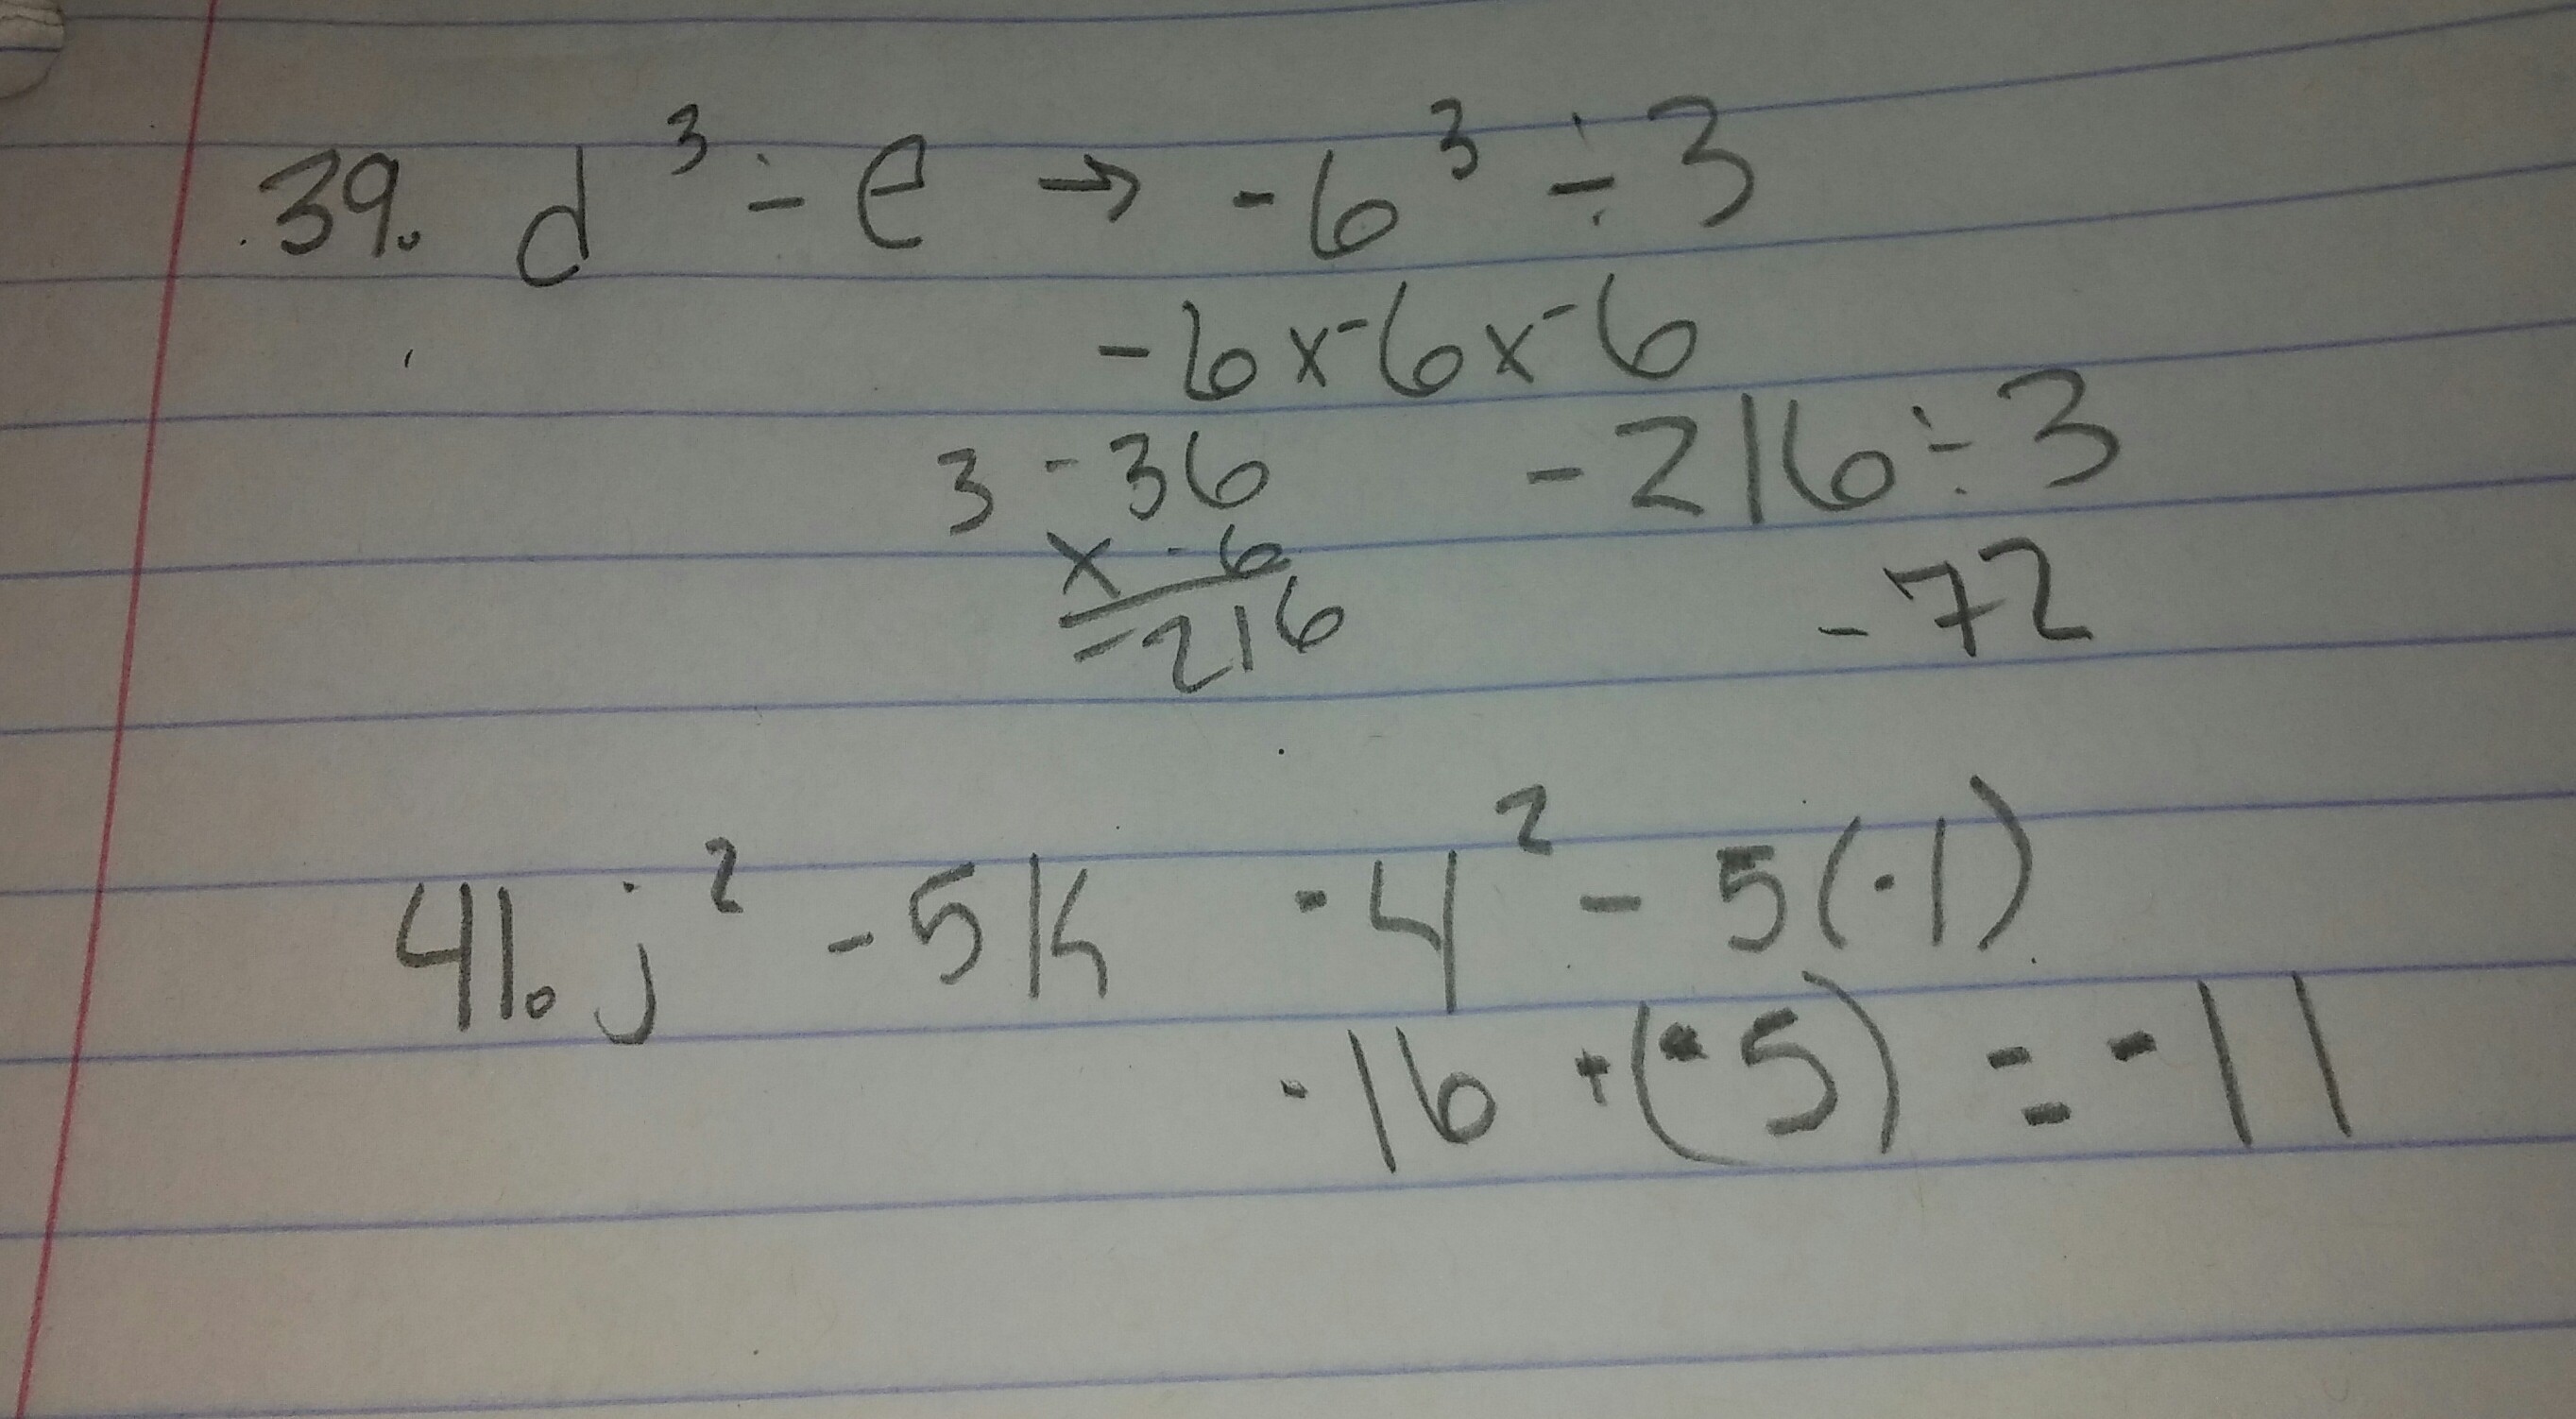 39. d³ ÷ e → -6³ ÷ 3
-6 x -6 x -6
3 -36 -216 ÷ 3
x -6
-216 -72
41. j² - 5k -4² - 5(-1)
-16 + (-5) = -11